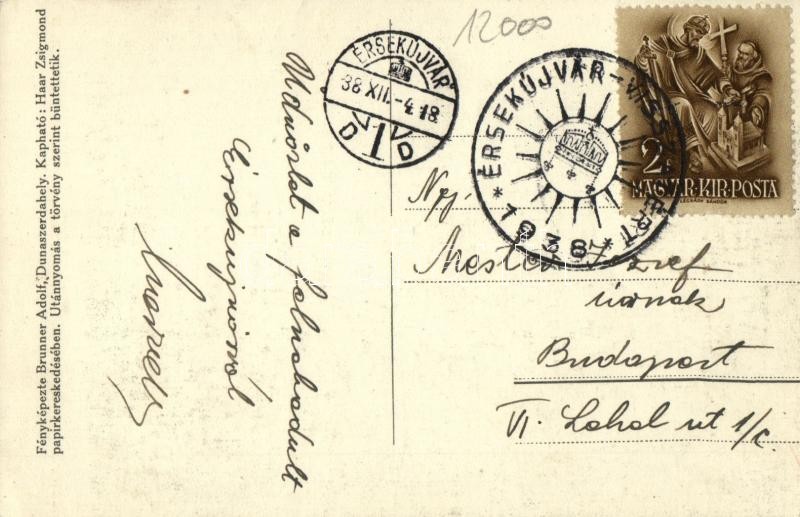 Fényképezte Brunner Adolf, Dunaszerdahely. Kapható: Haar Zsigmond
papirkereskedésében. Utánnyomás a törvény szerint büntettetik.
Üdvözlet a felszabadult
Érsekujvárról
12000
ÉRSEKÚJVÁR
38 XII.-4. 18
D 1 D
* ÉRSEKÚJVÁR - VISSZATÉRT *
1938
2f
MAGYAR·KIR·POSTA
LÉGRÁDY SÁNDOR
Mester József
úrnak
Budapest
VI. Lehel ut 1/c.